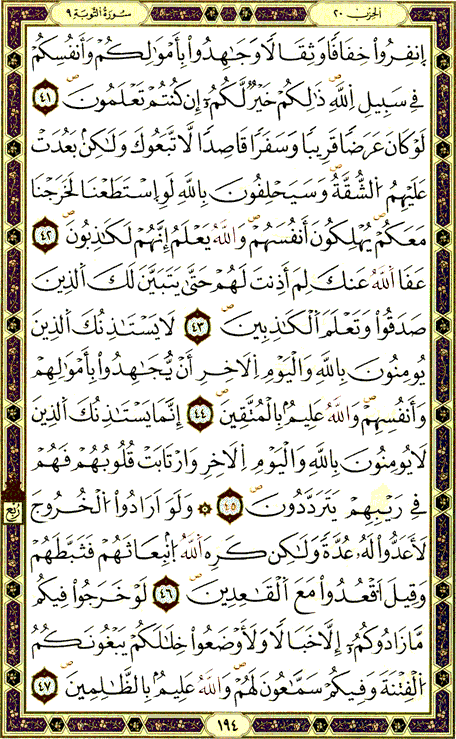 الحزب ٢٠
سورة التوبة ٩
اِنفِرُواْ خِفَافاً وَثِقَالاً وَجَٰهِدُواْ بِأَمْوَٰلِكُمْ وَأَنفُسِكُمْ
فِے سَبِيلِ اِ۬للَّهِ ذَٰلِكُمْ خَيْرٌ لَّكُمُۥٓ إِن كُنتُمْ تَعْلَمُونَ ٤١
لَوْ كَانَ عَرَضاً قَرِيباً وَسَفَراً قَاصِداً لَّاتَّبَعُوكَ وَلَٰكِنۢ بَعُدَتْ
عَلَيْهِمُ اُ۬لشُّقَّةُ وَسَيَحْلِفُونَ بِاللَّهِ لَوِ اِ۪سْتَطَعْنَا لَخَرَجْنَا
مَعَكُمْ يُهْلِكُونَ أَنفُسَهُمْ وَاللَّهُ يَعْلَمُ إِنَّهُمْ لَكَٰذِبُونَ ٤٢
عَفَا اَ۬للَّهُ عَنكَ لِمَ أَذِنتَ لَهُمْ حَتَّىٰ يَتَبَيَّنَ لَكَ اَ۬لذِينَ
صَدَقُواْ وَتَعْلَمَ اَ۬لْكَٰذِبِينَ ٤٣ لَا يَسْتَٰذِنُكَ اَ۬لذِينَ
يُومِنُونَ بِاللَّهِ وَالْيَوْمِ اِ۬لَاخِرِ أَنْ يُّجَٰهِدُواْ بِأَمْوَٰلِهِمْ
وَأَنفُسِهِمْ وَاللَّهُ عَلِيمٌۢ بِالْمُتَّقِينَ ٤٤ إِنَّمَا يَسْتَٰذِنُكَ اَ۬لذِينَ
لَا يُومِنُونَ بِاللَّهِ وَالْيَوْمِ اِ۬لَاخِرِ وَارْتَابَتْ قُلُوبُهُمْ فَهُمْ
فِے رَيْبِهِمْ يَتَرَدَّدُونَ ٤٥ ۞ وَلَوَ اَرَادُواْ اُ۬لْخُرُوجَ
ربع
لَأَعَدُّواْ لَهُۥ عُدَّةً وَلَٰكِن كَرِهَ اَ۬للَّهُ اُ۪نۢبِعَاثَهُمْ فَثَبَّطَهُمْ
وَقِيلَ اَ۟قْعُدُواْ مَعَ اَ۬لْقَٰعِدِينَ ٤٦ لَوْ خَرَجُواْ فِيكُم
مَّا زَادُوكُمُۥٓ إِلَّا خَبَالاً وَلَأَوْضَعُواْ خِلَٰلَكُمْ يَبْغُونَكُمُ
اُ۬لْفِتْنَةَ وَفِيكُمْ سَمَّٰعُونَ لَهُمْ وَاللَّهُ عَلِيمٌۢ بِالظَّٰلِمِينَ ٤٧
١٩٤